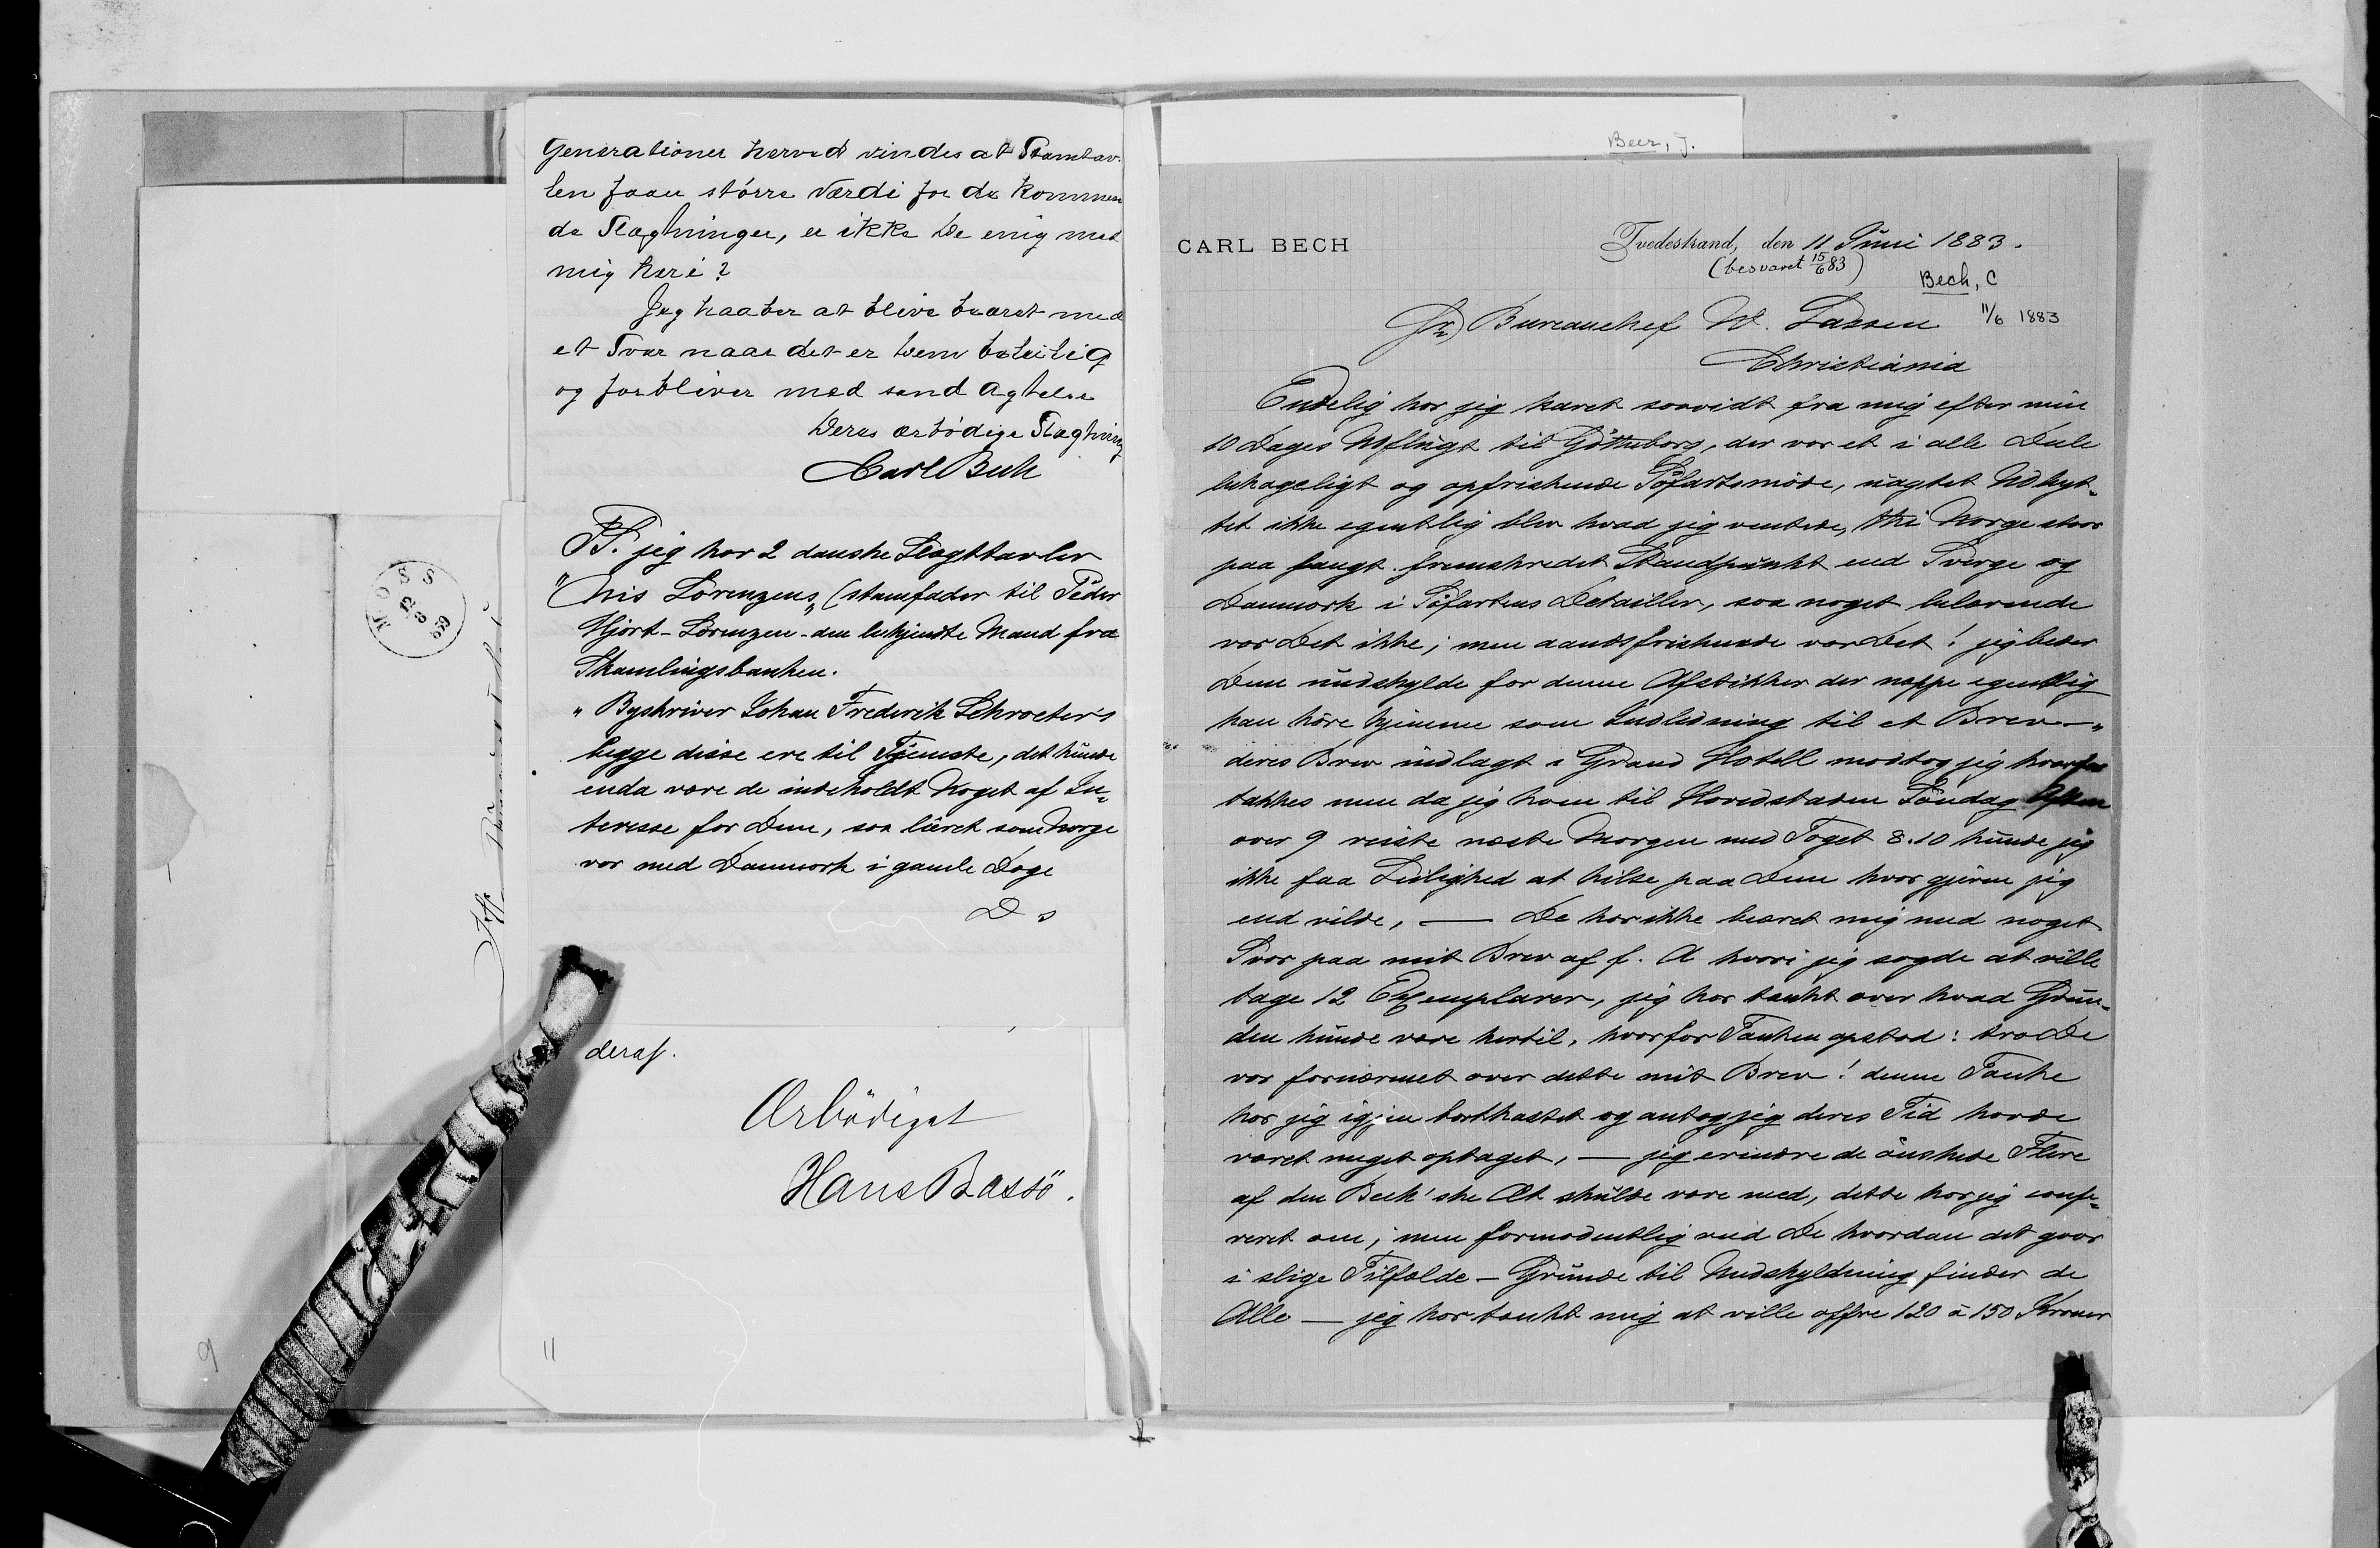 Generationer herved vindes at Stamtav-
len faaer større Værdi for de kommen
de Slægtninger, er ikke De enig med
mig heri?
Jeg haaber at blive beæret med
et Svar naar det er Dem beleilig
og forbliver med sand Agtelse
Deres ærbödige Slægtning
Carl Bech
PS. jeg har 2 danske Slægttavler
"Nis Lorenzens" (stamfader til Peder
Hjort-Lorenzen - den bekjendte Mand fra
Skamlingsbanken.
" Byskriver Johan Frederik Schroeter's
begge disse ere til Tjeneste, det kunde
enda være de indeholdt Noget af In-
teresse for Dem, saa lieret som Norge
var med Danmark i gamle Dage
D s
deraf.
Ærbödigst
Hans Bassö.
MOSS
12
8
11
9
Beer, J.
CARL BECH
Tvedestrand, den 11 Juni 1883.
(besvaret 15/6 83)
Bech, C
11/6 1883
Hr Bureauchef W. Lassen
Christiania
Endelig har jeg karet saavidt fra mig efter min
10 Dages Udflugt til Götheborg, der var et i alle Dele
behageligt og opfriskende Söfartsmöde, uagtet Udbyt-
tet ikke egentlig blev hvad jeg ventede, thi Norge staar
paa langt fremskredet Standpunkt end Sverge og
Danmark i Söfartens Detailler, saa noget belærende
var Det ikke; men aandsfriskende var Det! jeg beder
Dem undskylde for denne Afstikker der neppe egentlig
kan höre hjemme som Indledning til et Brev —"
deres Brev indlagt i Grand Hotell modtog jeg hvorfor
takkes men da jeg kom til Hovedstaden Söndag Aften
over 9 reiste næste Morgen med Toget 8.10 kunde jeg
ikke faa Leilighed at hilse paa Dem hvor gjerne jeg
end vilde, — De har ikke beæret mig med noget
Svar paa mit Brev af f. A hvori jeg sagde at ville
tage 12 Exemplarer, jeg har tænkt over hvad Grun-
den kunde være hertil, hvorfor Tanken opstod: tro De
var fornærmet over dette mit Brev! denne Tanke
har jeg igjen bortkastet og antog jeg deres Tid havde
været meget optaget, — jeg erindre de önskede Flere
af den Bech'ske Æt skulde være med, dette har jeg confe-
reret om; men formodentlig veed De hvordan det gaar
i slige Tilfælde — Grunde til Undskyldning finder de
Alle — jeg har tænkt mig at ville offre 120 à 150 Kroner